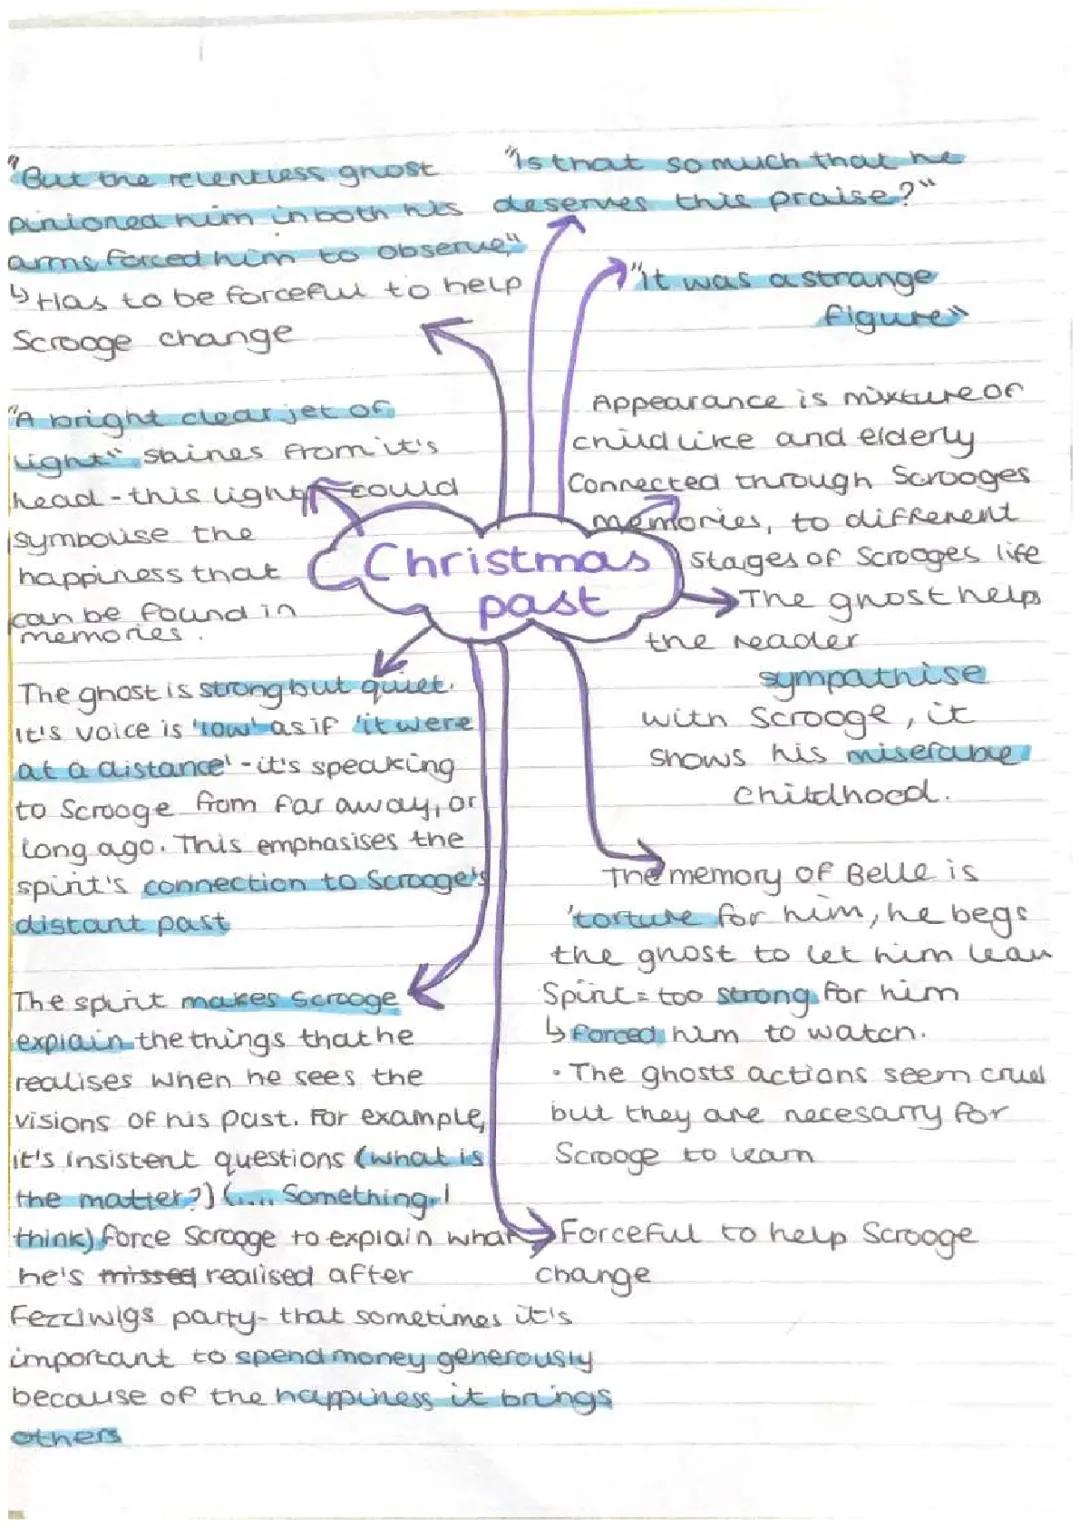 "But the relentless ghost
pinioned him in both his
arms forced him to observe"
↳ Has to be forceful to help
Scrooge change
"Is that so much that he
deserves this praise?"
"it was a strange
figure"
"A bright clear jet of
light" shines from it's
head - this light could
symbolise the
happiness that
can be found in
memories.
Appearance is mixture of
child like and elderly
Connected through Scrooges
memories, to different
stages of Scrooges life
Christmas
past
The ghost helps
the reader
sympathise
with Scrooge, it
shows his miserable
childhood.
The ghost is strong but quiet.
it's voice is 'low' as if 'it were
at a distance' - it's speaking
to Scrooge from far away, or
long ago. This emphasises the
spirit's connection to Scrooge's
distant past
The memory of Belle is
'torture for him, he begs
the ghost to let him leav
Spirit = too strong for him
↳ forced him to watch.
• The ghosts actions seem cruel
but they are necesarry for
Scrooge to learn
The spirit makes Scrooge
explain the things that he
realises when he sees the
visions of his past. For example,
it's insistent questions (what is
the matter?) (.... Something, I
think) force Scrooge to explain what
he's missed realised after
Fezziwigs party - that sometimes it's
important to spend money generously
because of the happiness it brings
others
Forceful to help Scrooge
change